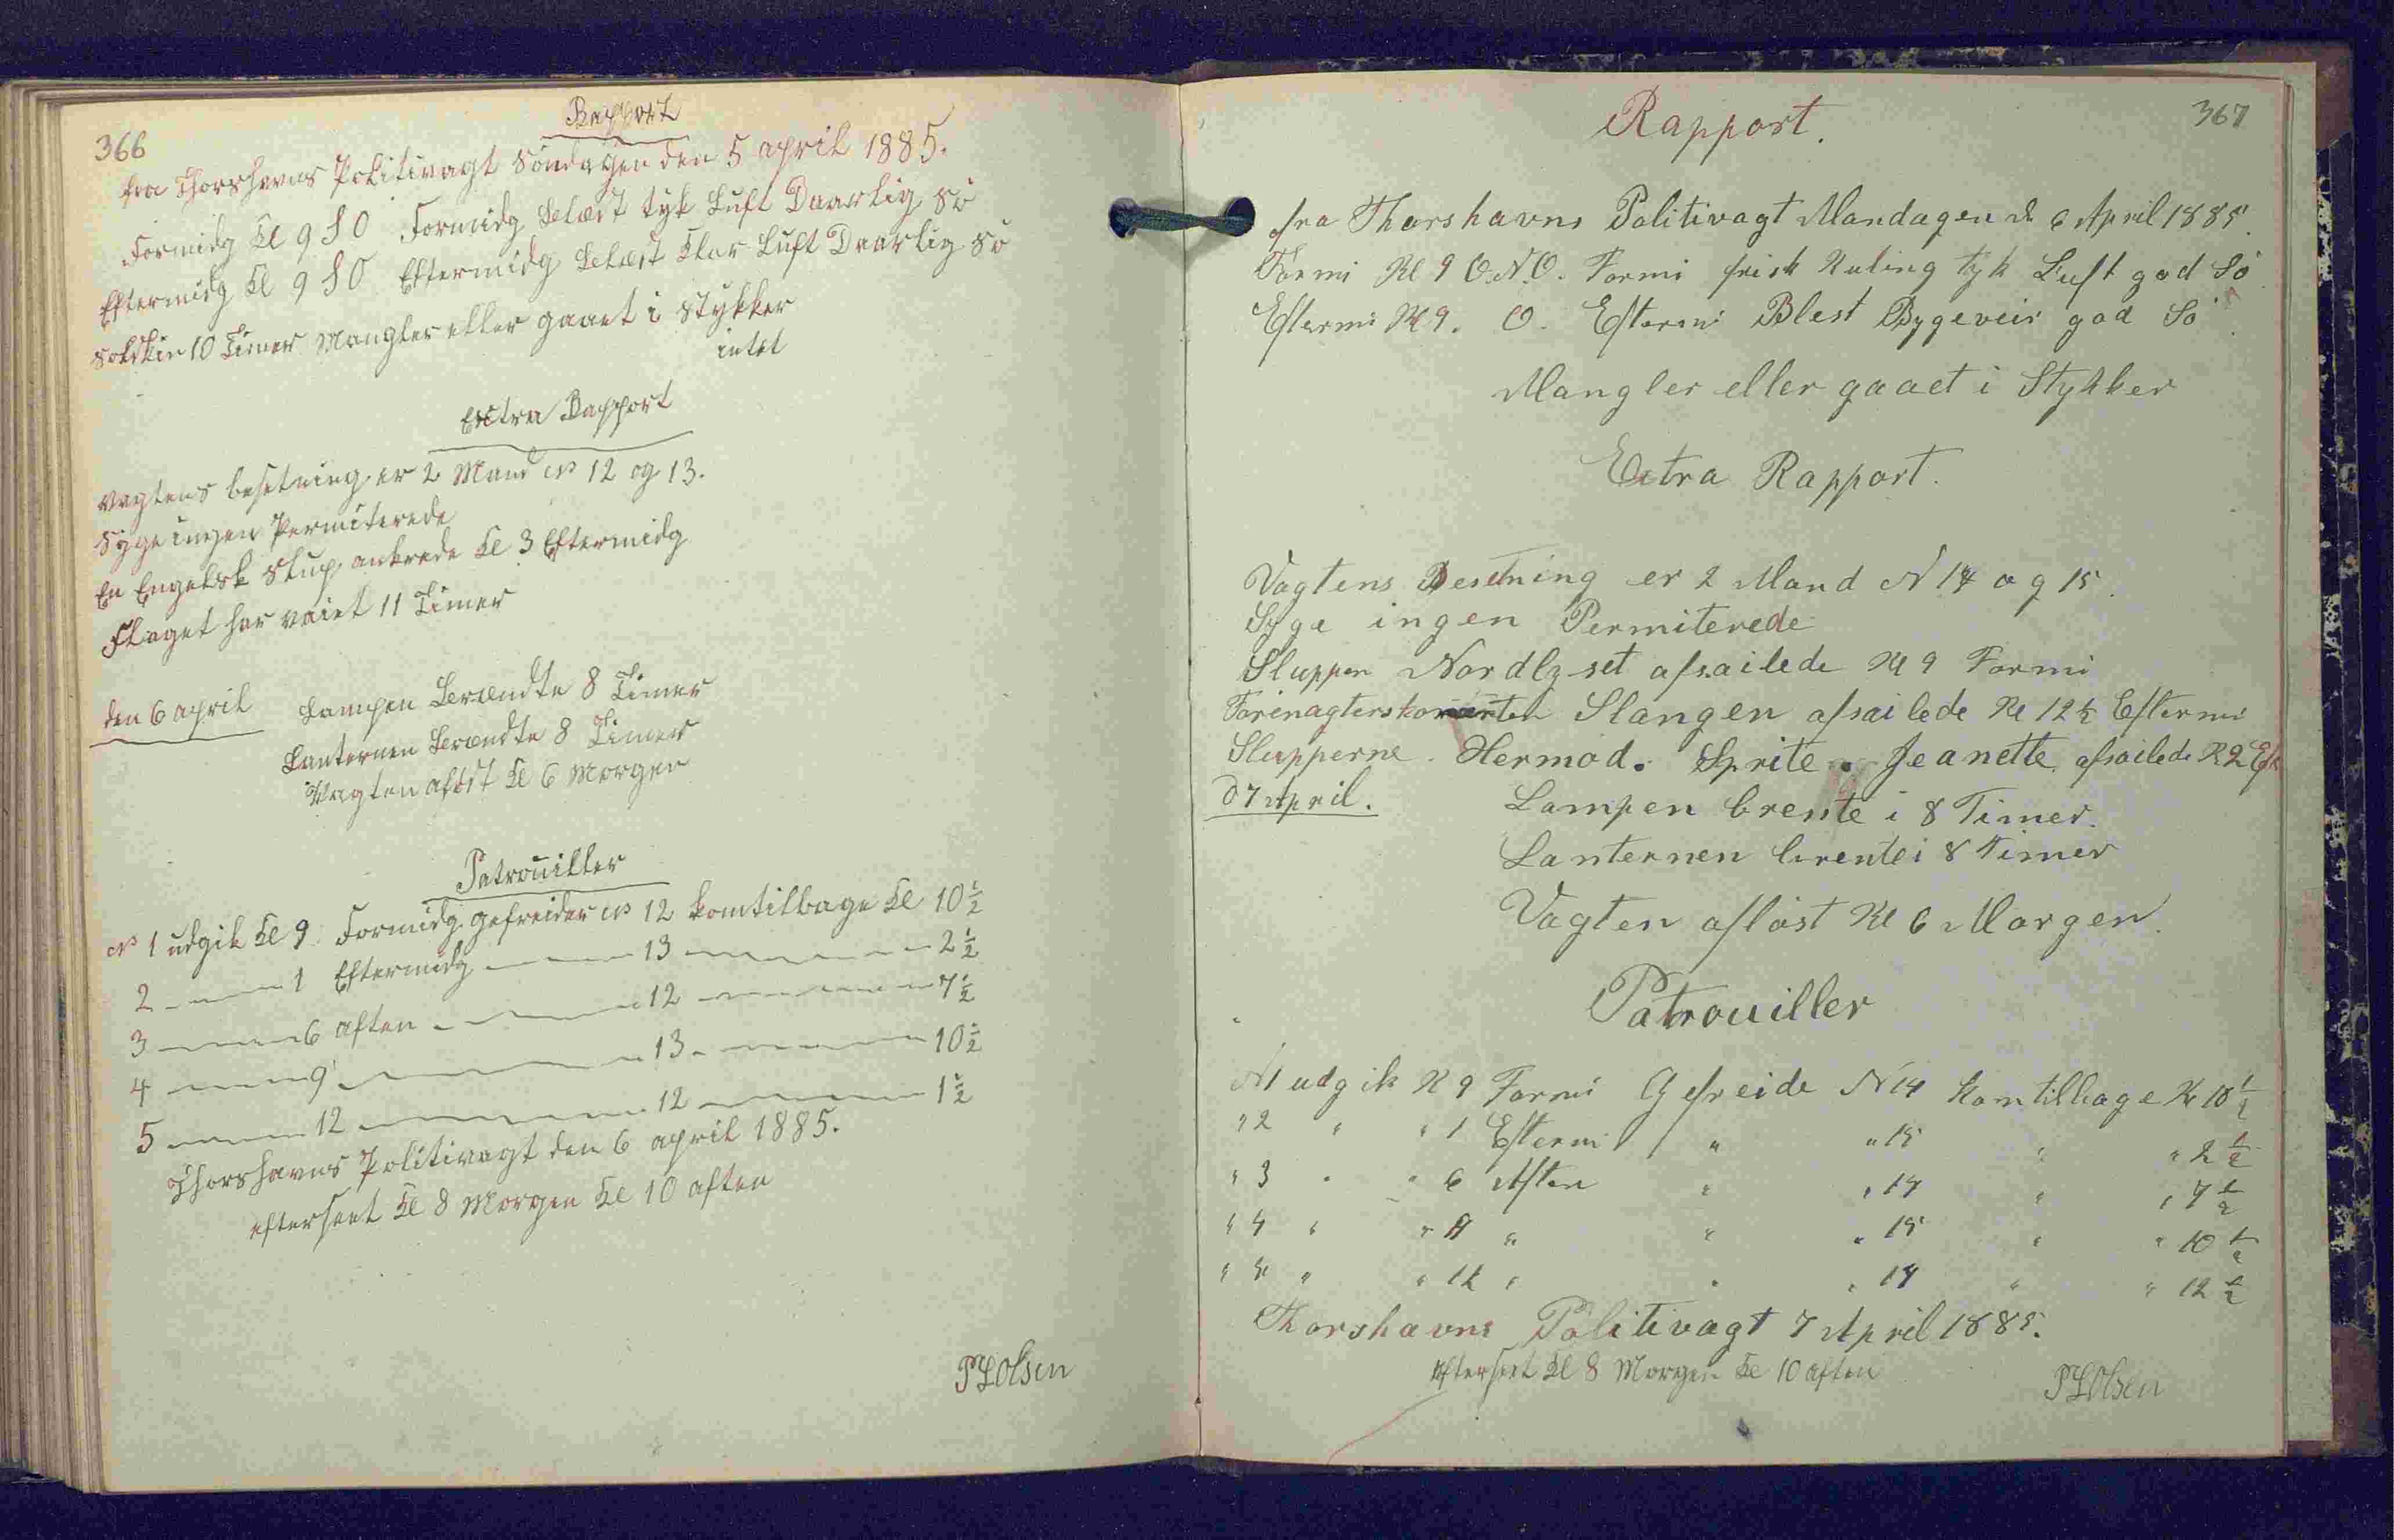 366
Rapport
fra Thorshavns Politivagt Söndagen den 5 april 1885.
Formidg Kl 9 SO Formidg Belæst tyk Luft Daarlig Sö
Eftermidg Kl 9 SO Eftermidg Belæst Klar Luft Daarlig Sö
Solskin 10 Timer Mangler eller gaaet i Stykker
intet
Extra Rapport
Vagtens besetning er 2 Mand No 12 og 13.
Syge ingen Permiterede
En Engelsk Slup ankrede Kl 3 Eftermidg
Flaget har vaiet 11 Timer
den 6 april Lampen Brændte 8 Timer
Lanternen Brændte 8 Timer
Vagten aflöst Kl 6 Morgen
Patrouiller
No 1 udgik Kl 9 Formidg. gefreider No 12 komtilbage Kl 10 1/2
2 — 1 Eftermidg — 13 — 2 1/2
3 — 6 aften — 12 — 7 1/2
4 — 9 — 13 — 10 1/2
5 — 12 — 12 — 1 1/2
Thorshavns Politivagt den 6 april 1885.
efterseet Kl 8 Morgen Kl 10 aften
PLOlsen
367
Rapport.
fra Thorshavns Politivagt Mandagen d 6 April 1885.
Formi Kl 9 O.N.O. Formi frisk Kuling tyk Luft god Sö
Eftermi Kl 9. O. Eftermi Blest Bygeveir god Sö
Mangler eller gaaet i Stykker
Extra Rapport.
Vagtens Besetning er 2 Mand N 14 og 15.
Syge ingen Permiterede
Sluppen Nordlyset afsailede Kl 9 Formi
Slangen afsailede Kl 12 1/2 Eftermi
Slupperne. Hermod. Sprite. Jeanette afsailede K 2 Eft
d 7 April. Lampen brente i 8 Timer.
Lanternen brente i 8 Timer
Vagten aflöst Kl 6 Morgen.
Patrouiller
N1 udgik K 9 Formi Gefreide N 14 komtilbage Kl 10 1/2
" 2 " " 1 Eftermi " " 15 " " 2 1/2
" 3 " " 6 Aften " " 14 " " 7 1/2
" 4 " " 9 " " " 15 " " 10 1/2
" 5 " " 12 " " " 14 " " 12 1/2
Thorshavns Politivagt 7 April 1885.
Efterseet Kl 8 Morgen Kl 10 aften
PLOlsen